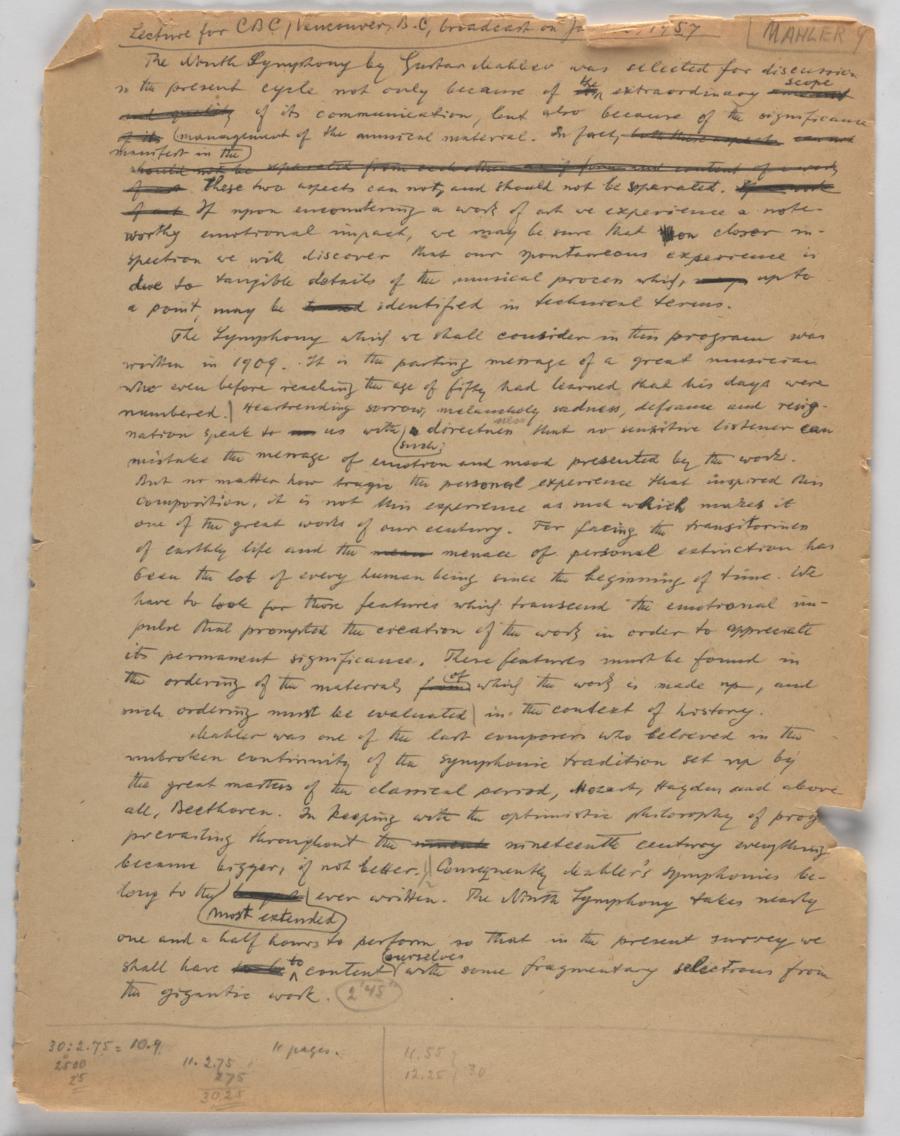 Lecture for CBC, Vancouver, B.C., broadcast on Ja 1957
MAHLER 9
The Ninth Symphony by Gustav Mahler was selected for discussion
in the present cycle not only because of the extraordinary scope
and quality of its communication, but also because of the significance
of its management of the musical material. In fact, both these aspects cannot
manifest in the
should not be separated from each other as if form and content of a work
of art. These two aspects can not, and should not be separated. If a work
of art If upon encountering a work of art we experience a note-
worthy emotional impact, we may be sure that upon closer in-
spection we will discover that our spontaneous experience is
due to tangible details of the musical process which, up to
a point, may be identified in technical terms.
The Symphony which we shall consider in this program was
written in 1909. It is the parting message of a great musician
who even before reaching the age of fifty had learned that his days were
numbered. Heartrending sorrow, melancholy sadness, defiance and resig-
nation speak to us with directness that no sensitive listener can
such
mistake the message of emotion and mood presented by the work.
But no matter how tragic the personal experience that inspired this
composition, it is not this experience as such which makes it
one of the great works of our century. For facing the transitoriness
of earthly life and the menace of personal extinction has
been the lot of every human being since the beginning of time. We
have to look for those features which transcend the emotional im-
pulse that prompted the creation of the work in order to appreciate
its permanent significance. These features must be found in
the ordering of the materials from of which the work is made up, and
such ordering must be evaluated in the context of history.
Mahler was one of the last composers who believed in the
unbroken continuity of the symphonic tradition set up by
the great masters of the classical period, Mozart, Haydn and above
all, Beethoven. In keeping with the optimistic philosophy of prog
prevailing throughout the nineteenth century everything
became bigger, if not better. Consequently Mahler's symphonies be-
long to the ever written. The Ninth Symphony takes nearly
most extended
one and a half hours to perform so that in the present survey we
shall have to content ourselves with some fragmentary selections from
the gigantic work. 2'45"
30:2.75 = 10.9
2500
25
11. 2.75
275
30.25
11 pages.
11.55
12.25 } 30